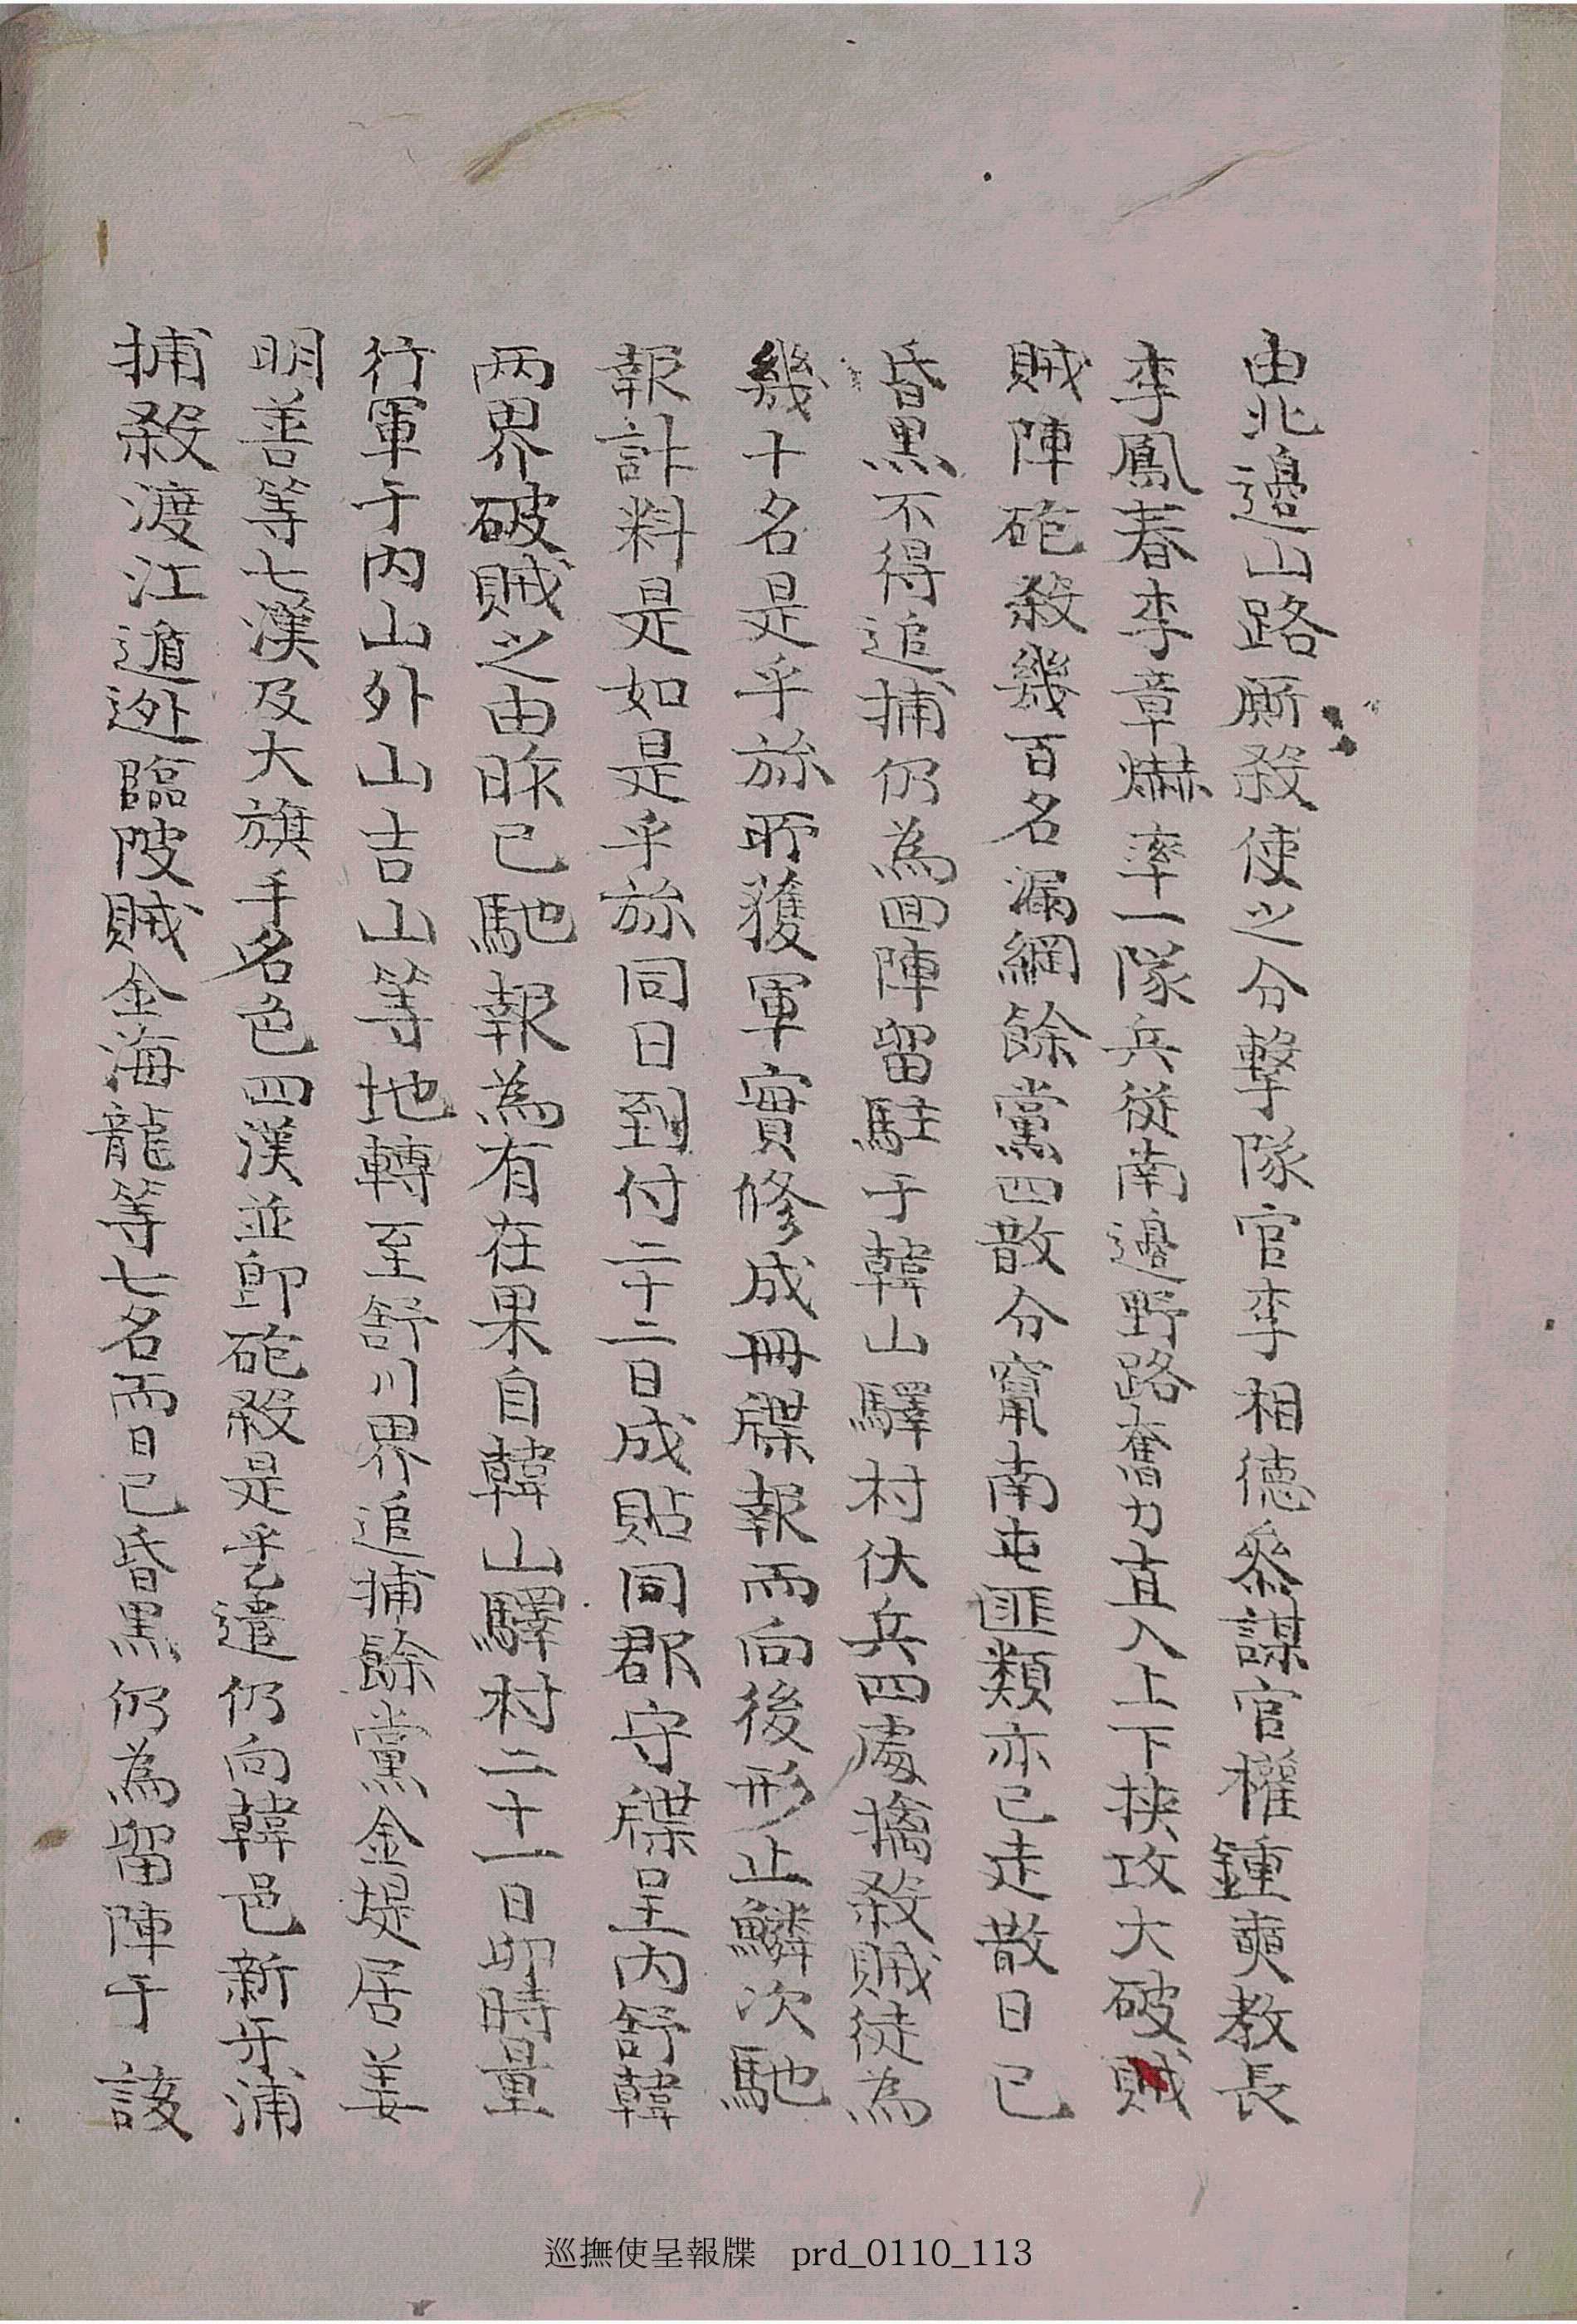 由北邊山路厮殺使之分擊隊官李相德叅謀官權鍾奭教長
李鳳春李章爀率一隊兵從南邊野路奮力直入上下挾攻大破賊
賊陣砲殺幾百名漏網餘黨四散分竄南屯匪類亦已走散日已
昏黑不得追捕仍為回陣留駐于韓山驛村伏兵四處擒殺賊徒為
幾十名是乎旀所獲軍實修成冊牒報而向後形止鱗次馳
報計料是如是乎旀同日到付二十二日成貼同郡守牒呈內舒韓
两界破賊之由昨已馳報為有在果自韓山驛村二十一日卯時量
行軍于內山外山吉山等地轉至舒川界追捕餘黨金堤居姜
明善等七漢及大旗手名色四漢並卽砲殺是乎遣仍向韓邑新牙浦
捕殺渡江遁迯臨陂賊金海龍等七名而日已昏黑仍為留陣于該
巡撫使呈報牒 prd_0110_113